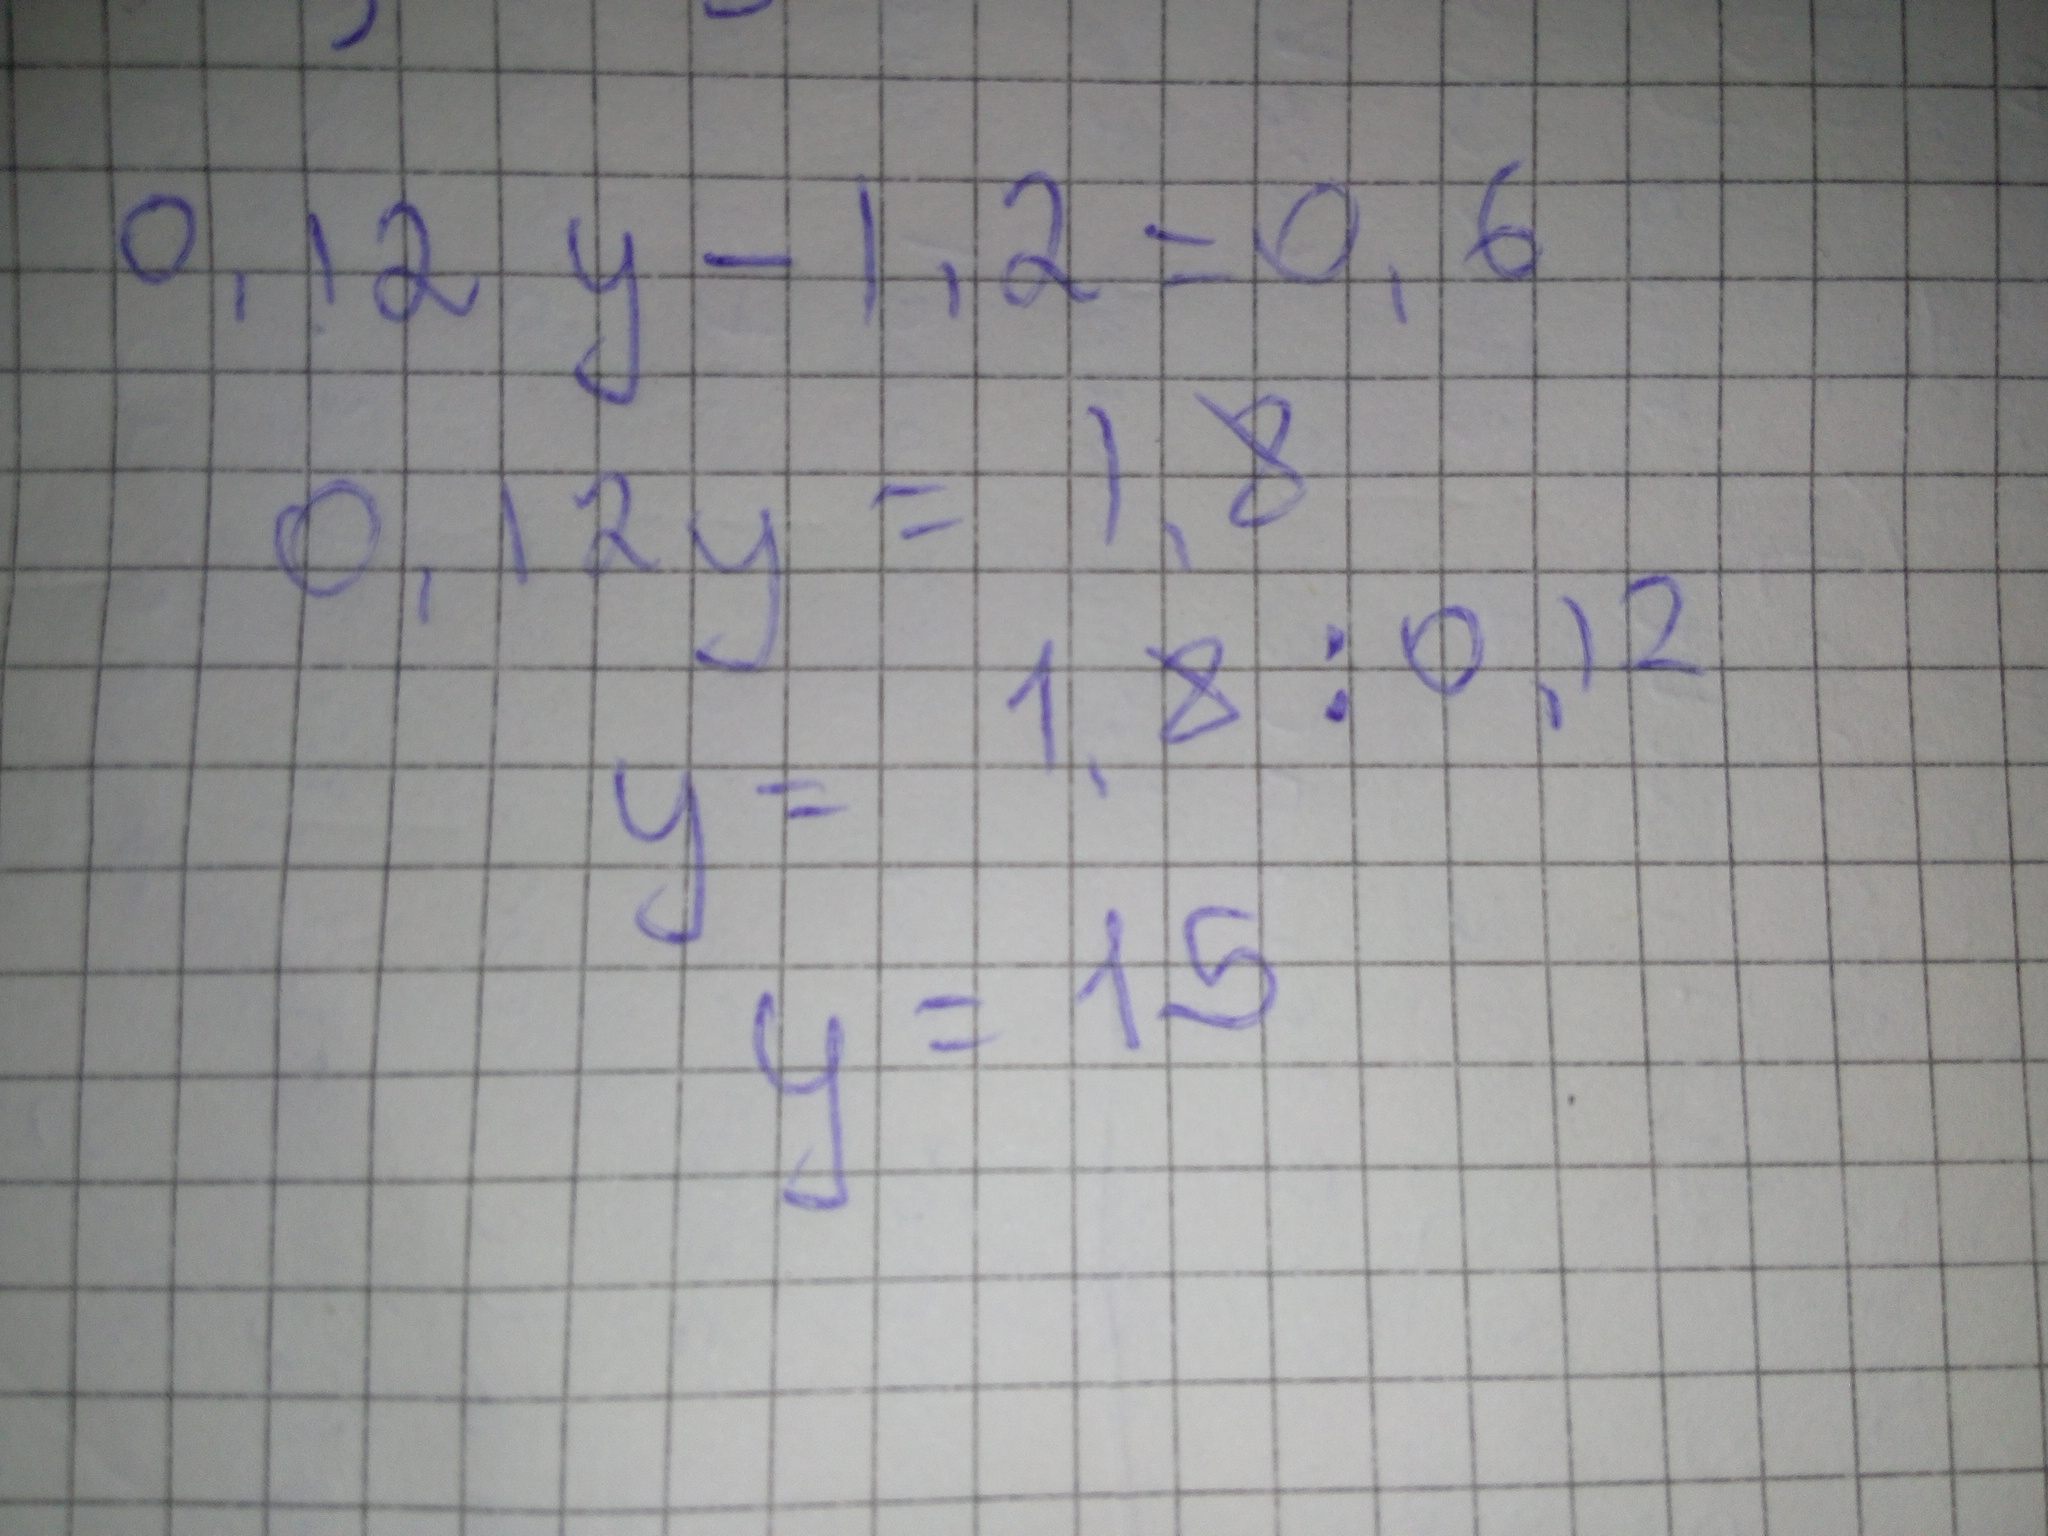 0,12 y - 1,2 = 0,6
0,12y = 1,8
y = 1,8 : 0,12
y = 15